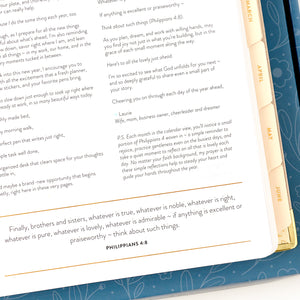 do new the same thing each year, sm
really help.
, as I prepare for all the new things
about what's ahead, I'm also reminding
ow down, savor right where I am, and lean
of all things – in my work, our home, and in the
ry moments tucked in between.
k into this new year, I encourage you to
with all the excitement that a fresh planner,
or your favorite sticker sheet can bring.
s slow down just enough to soak up right where
ready at work, in so many beautiful ways today.
bly made bed.
y morning walk,
rfect pen that writes just right,
ple task well done,
organized desk that clears space for your thoughts
ettle in,
d maybe a brand-new opportunity that begins
ly, right here in these very pages.
anything is excellent or
praiseworthy –
think about such things. (Philippians 4:8)
As you plan, dream, and work with willing hands, may
you find joy not just in what you're building, but in the
grace of each small moment along the way.
Here's to all the lovely still ahead!
I'm so excited to see what God unfolds for you – and
so deeply grateful to share even a small part of
your story.
Cheering you on through each day of the year ahead,
Laurie
Wife, mom, business owner, cheerleader and dreamer
P.S. Each month in the calendar view, you'll notice a small
portion of Philippians 4 woven in – a simple reminder to
rejoice, practice gentleness even on the busiest days, and
take a quiet moment to reflect on all that is lovely each
day. No matter your faith background, my prayer is that
these simple reflections help to steady your heart and
guide your hands throughout the year.
Finally, brothers and sisters, whatever is true, whatever is noble, whatever is right,
whatever is pure, whatever is lovely, whatever is admirable – if anything is excellent or
praiseworthy – think about such things.
PHILIPPIANS 4:8
MARCH
APRIL
MAY
JUNE